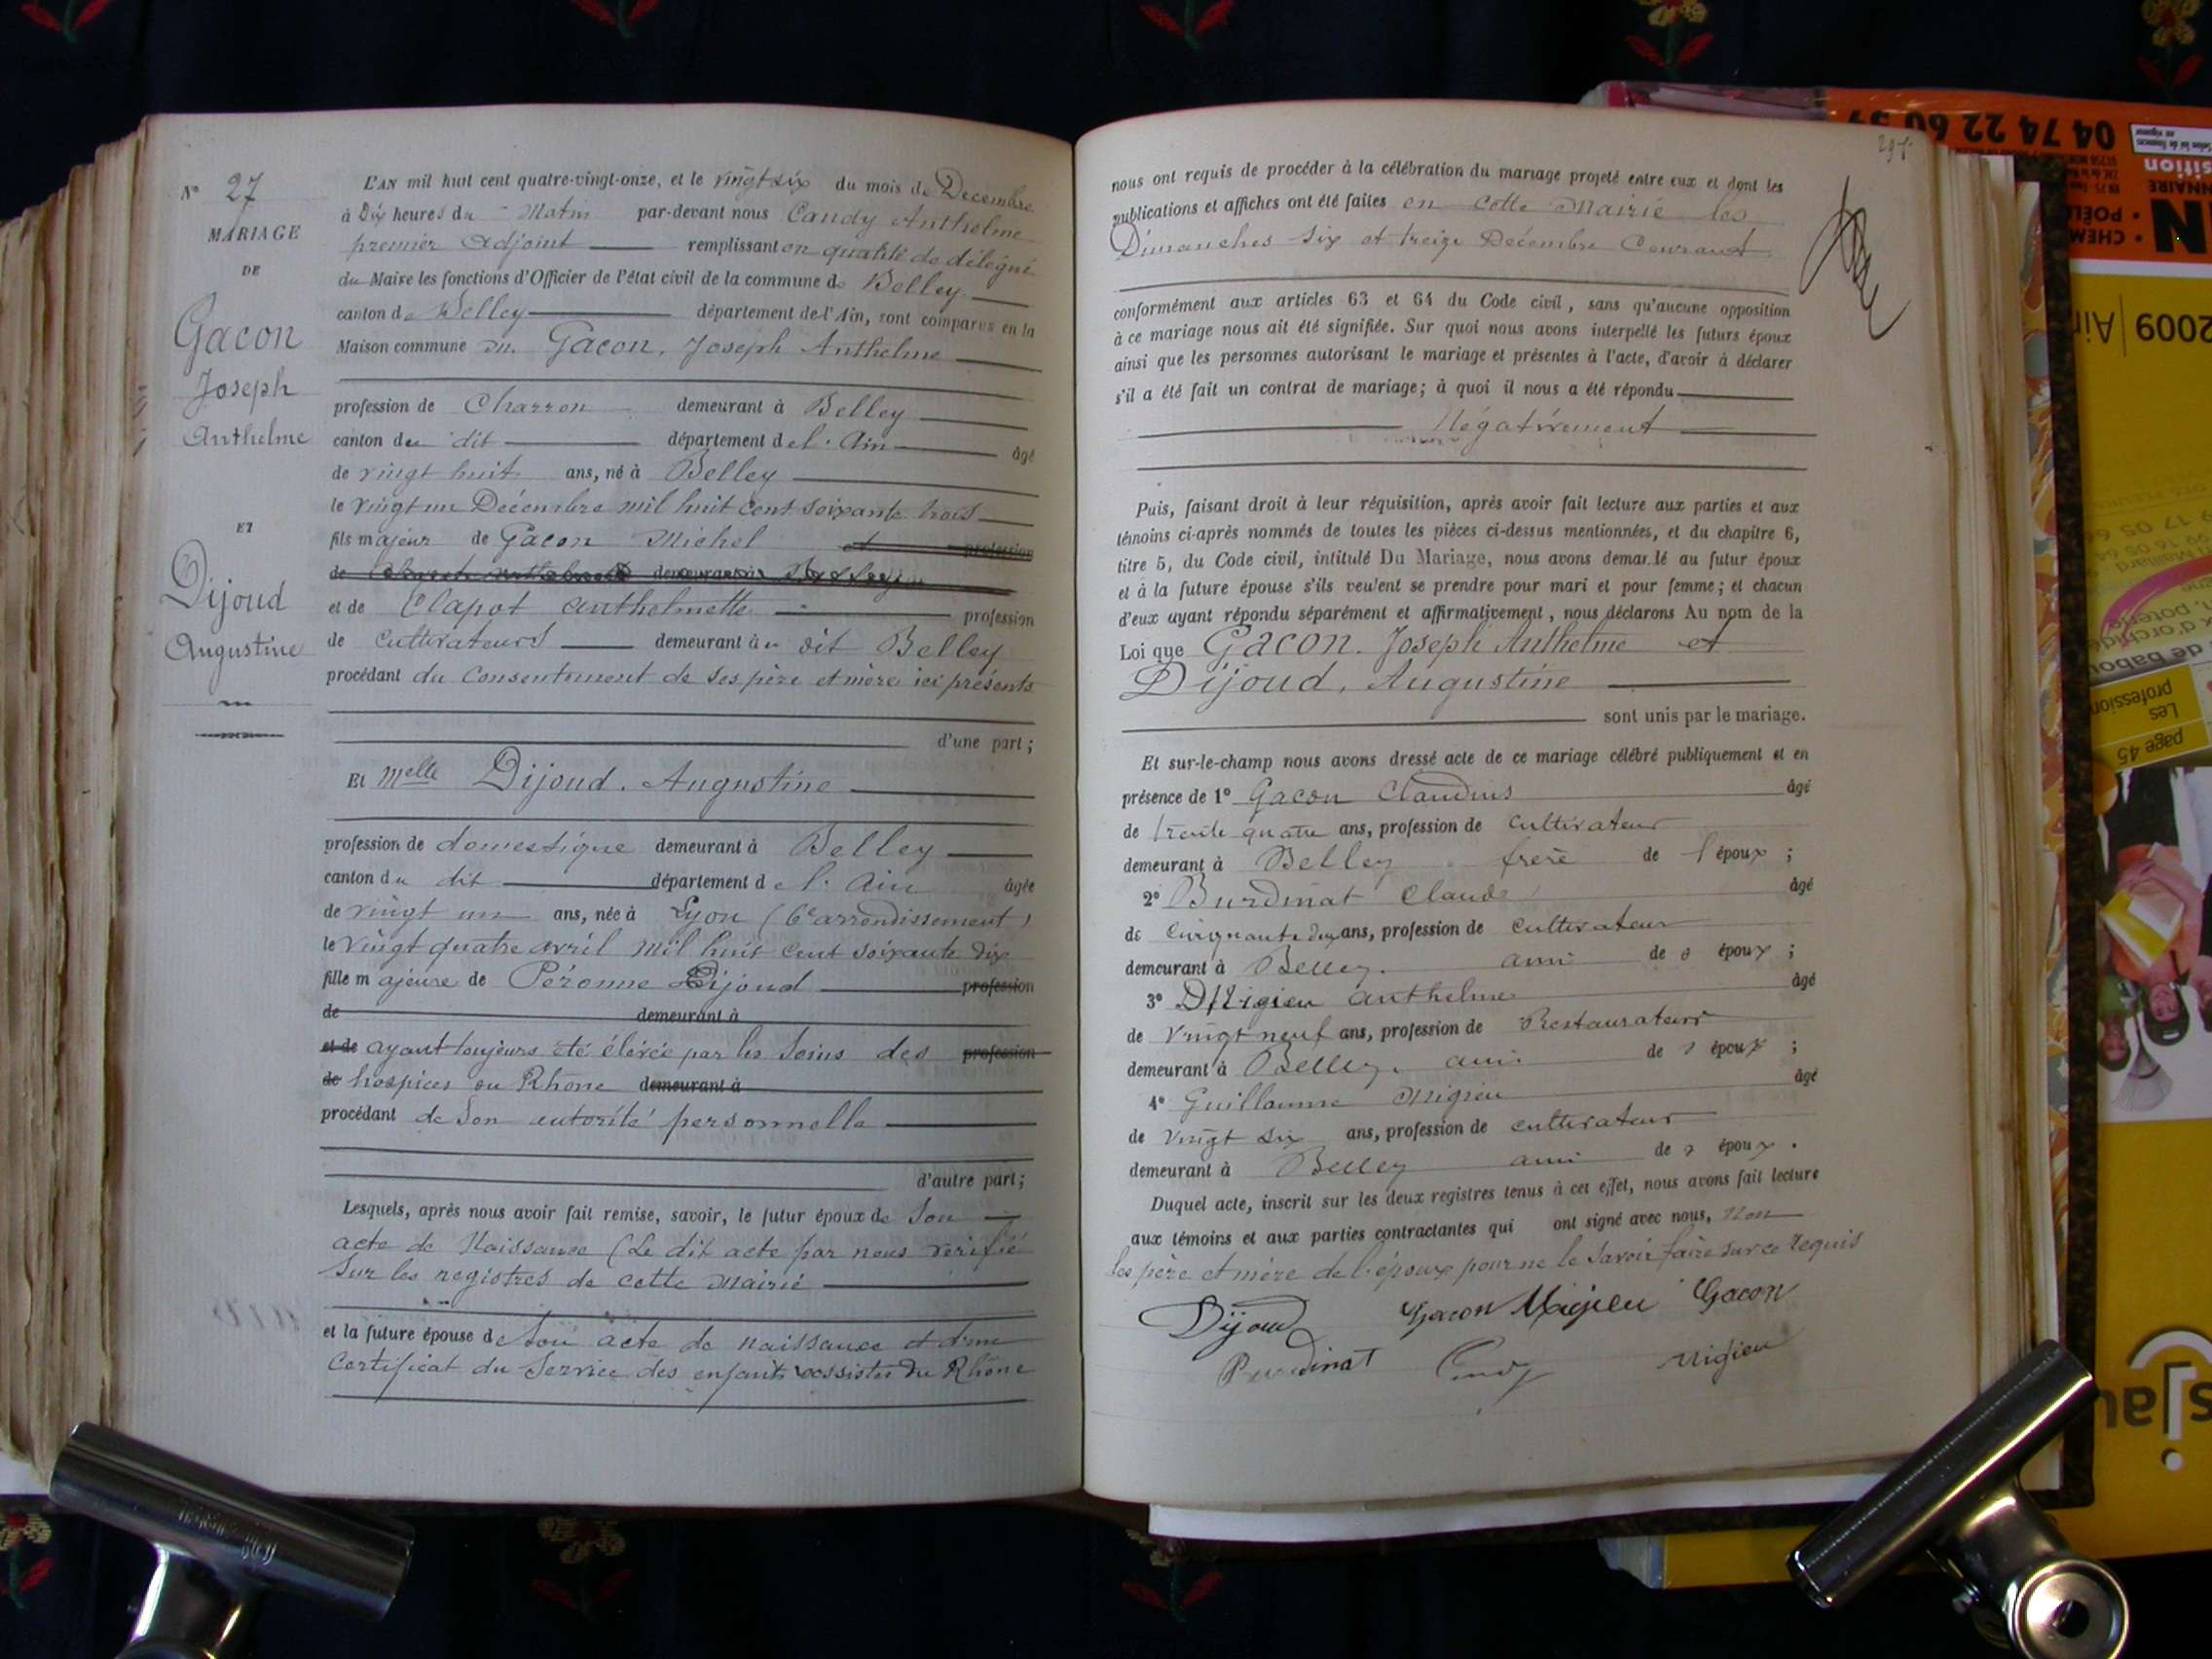 N° 27
MARIAGE
DE
Gacon
Joseph
Anthelme
ET
Dijoud
Augustine
L'AN mil huit cent quatre-vingt-onze, et le vingt six du mois de Decembre
à Dix heures du Matin par-devant nous Candy Anthelme
premier Adjoint remplissant en qualité de délégué
du Maire les fonctions d'Officier de l'état civil de la commune de Belley
canton de Belley département de l'Ain, sont comparus en la
Maison commune M. Gacon, Joseph Anthelme
profession de Charron demeurant à Belley
canton du dit département de l'Ain âgé
de vingt huit ans, né à Belley
le vingt un Décembre mil huit cent soixante trois
fils majeur de Gacon Michel et profession
de demeurant à Belley
et de Clapot Anthelmette profession
de cultivateurs demeurant au dit Belley
procédant du consentement de ses père et mère ici présents
d'une part;
Et Melle Dijoud, Augustine
profession de domestique demeurant à Belley
canton du dit département de l'Ain âgée
de vingt un ans, née à Lyon (6e arrondissement)
le vingt quatre avril mil huit cent soixante dix
fille majeure de Péronne Dijoud profession
de demeurant à
et de ayant toujours été élevée par les soins des profession
de hospices du Rhône demeurant à
procédant de son autorité personnelle
d'autre part;
Lesquels, après nous avoir fait remise, savoir, le futur époux de son
acte de Naissance (Le dit acte par nous vérifié
sur les registres de cette Mairie
et la future épouse de son acte de naissance et d'un
Certificat du Service des enfants assistés du Rhône
297
nous ont requis de procéder à la célébration du mariage projeté entre eux et dont les
publications et affiches ont été faites en cette Mairie les
Dimanches six et treize Décembre Courant
conformément aux articles 63 et 64 du Code civil, sans qu'aucune opposition
à ce mariage nous ait été signifiée. Sur quoi nous avons interpellé les futurs époux
ainsi que les personnes autorisant le mariage et présentes à l'acte, d'avoir à déclarer
s'il a été fait un contrat de mariage; à quoi il nous a été répondu
Négativement
Puis, faisant droit à leur réquisition, après avoir fait lecture aux parties et aux
témoins ci-après nommés de toutes les pièces ci-dessus mentionnées, et du chapitre 6,
titre 5, du Code civil, intitulé Du Mariage, nous avons demandé au futur époux
et à la future épouse s'ils veulent se prendre pour mari et pour femme; et chacun
d'eux ayant répondu séparément et affirmativement, nous déclarons Au nom de la
Loi que Gacon. Joseph Anthelme et
Dijoud, Augustine
sont unis par le mariage.
Et sur-le-champ nous avons dressé acte de ce mariage célébré publiquement et en
présence de 1° Gacon Claudius âgé
de trente quatre ans, profession de cultivateur
demeurant à Belley frère de l'époux;
2° Burdinat Claude âgé
de cinquante deux ans, profession de cultivateur
demeurant à Belley. ami de s époux;
3° Migieu Anthelme âgé
de vingt neuf ans, profession de Restaurateur
demeurant à Belley. ami de s époux;
4° Guillaume Migieu âgé
de vingt six ans, profession de cultivateur
demeurant à Belley ami de s époux.
Duquel acte, inscrit sur les deux registres tenus à cet effet, nous avons fait lecture
aux témoins et aux parties contractantes qui ont signé avec nous, Non
les père et mère de l'époux pour ne le savoir faire sur ce requis
Dijoud Gacon Migieu Gacon
Burdinat Candy Migieu
04 74 22 60 5
sition
NNAIRE
• POÊL
• CHEM
2009 | Ain
Les
profession
page 45